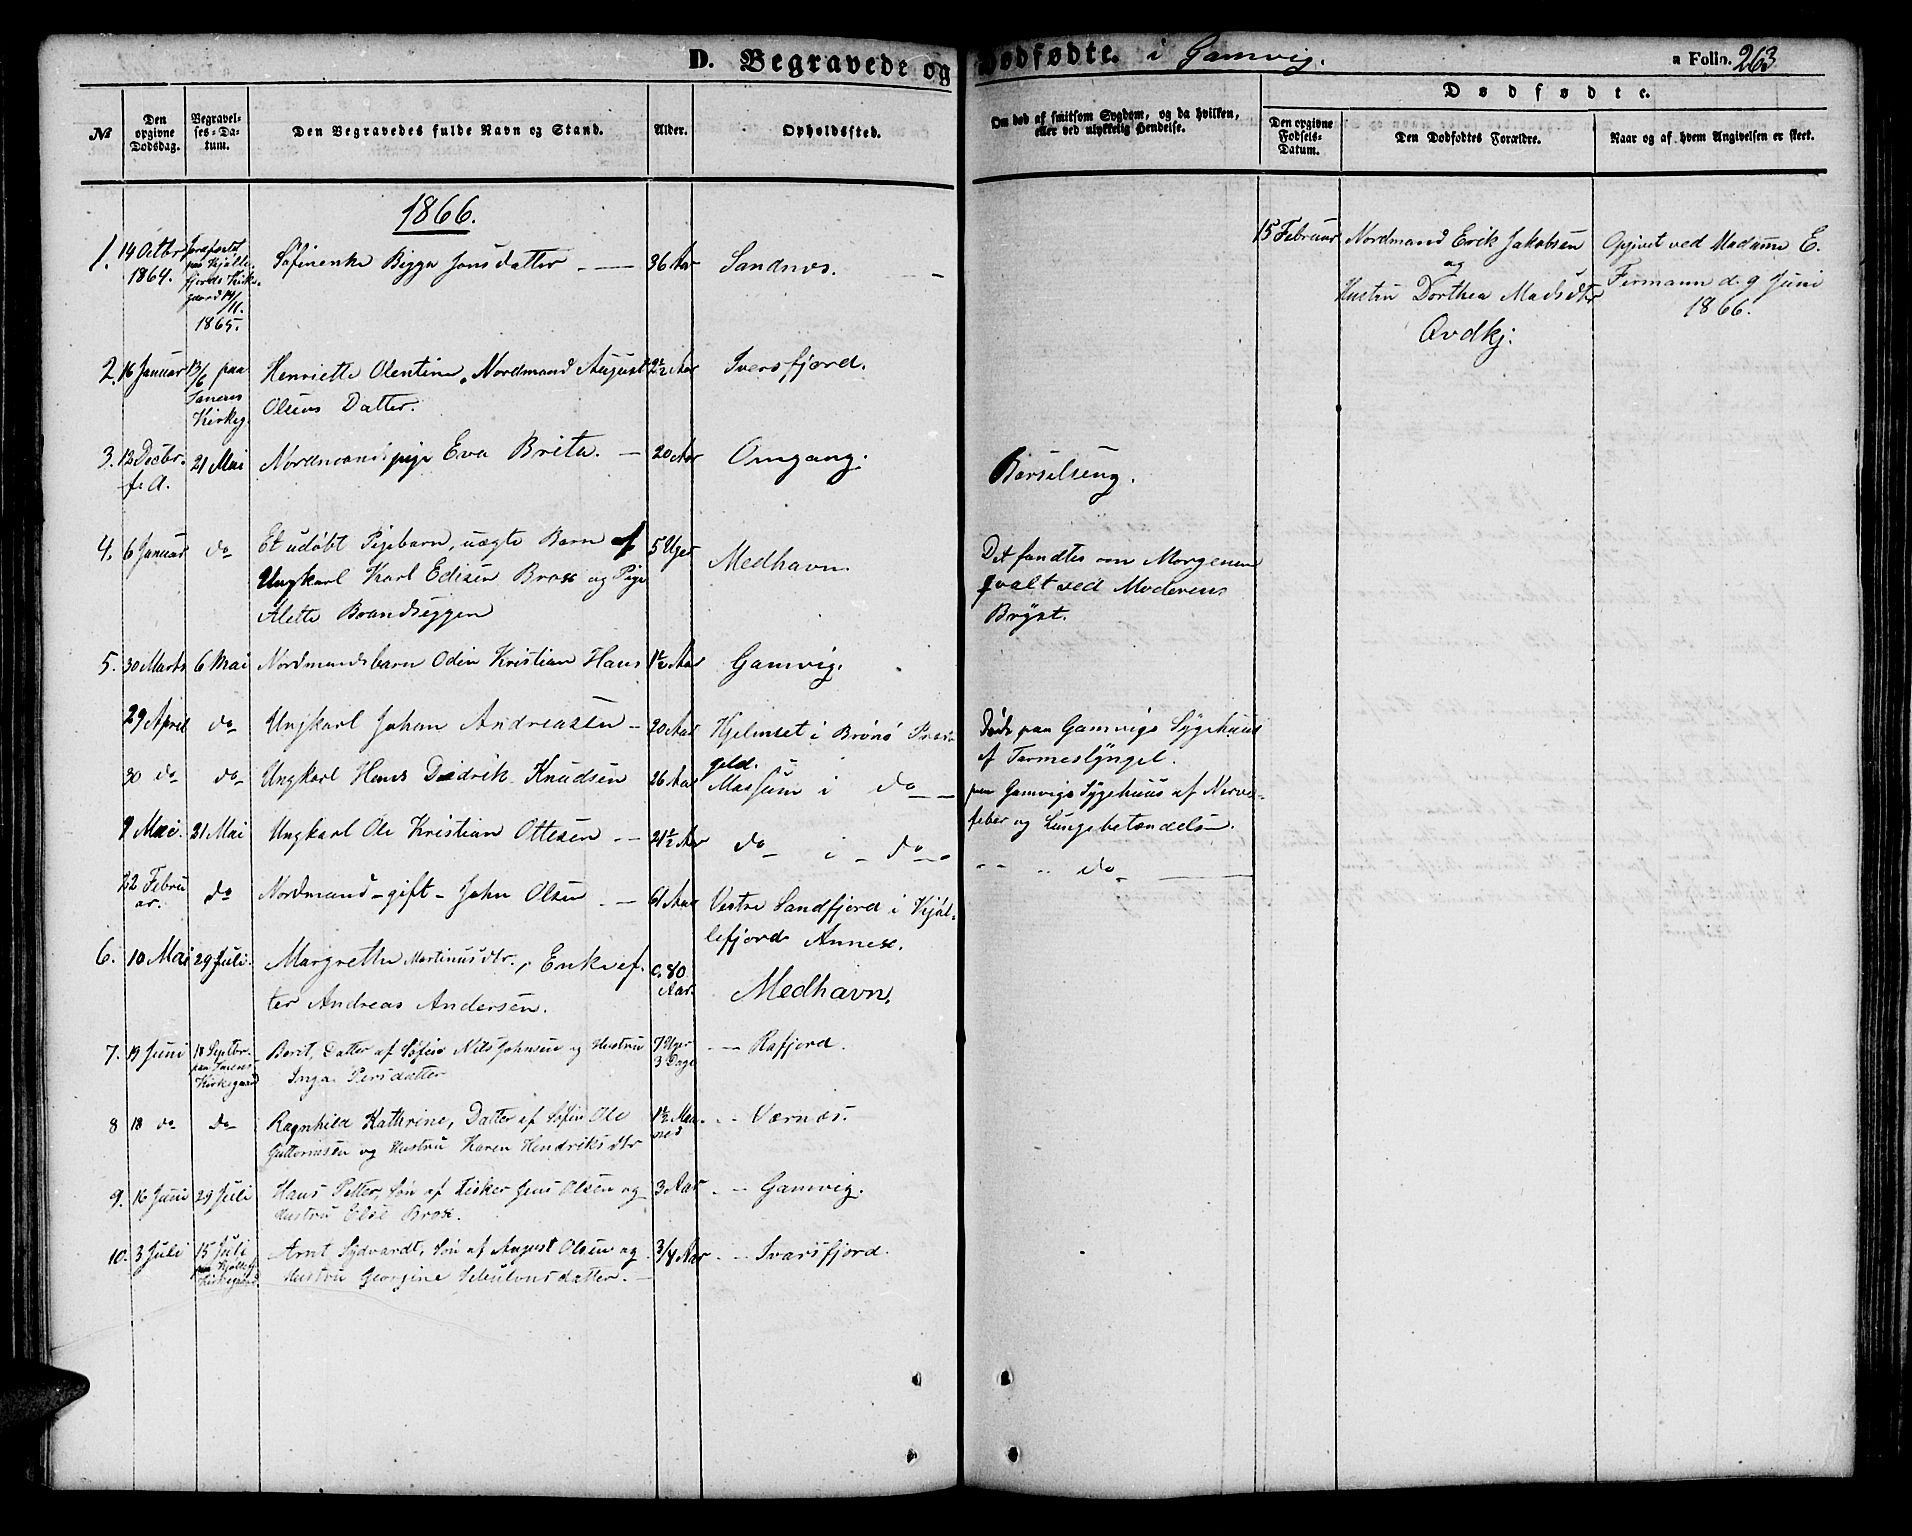 D. Begravede og Dødfødte. i Gamvig.
a Folio. 263
№
Den opgivne Dødsdag.
Begravelses-Datum.
Den Begravedes fulde Navn og Stand.
Alder.
Opholdssted.
Om død af smitsom Sygdom, og da hvilken, eller ved ulykkelig Hendelse.
Dødfødte.
Den opgivne Fødsels-Datum.
Den Dødfødtes Forældre.
Naar og af hvem Angivelsen er skeet.
1866.
1. 14 Octbr 1864. Jordfæstet paa Kjøllefjords Kirkegaard 14/11. 1865. Søfinenke Bigga Jonsdatter 36 Aar Sandnes.
15 Februar Nordmand Erik Jakobsen
og
Hustru Dorthea Madsdtr
Ovdkj.
Opgivet ved Madame E.
Fermann d. 9 Juni
1866.
2. 16 Januar 13/6 paa Kirkeg. Henriette Olentine, Nordmand August 2½ Aar Iversfjord.
Olsens Datter.
3. 12 Decbr. f. A. 21 Mai Nordmandspige Eva Brita. 20 Aar Omgang. Barselseng.
4. 6 Januar do Et udøbt Pigebarn, uægte Barn af 5 Uger Medhavn. Det fandtes om Morgenen
Ungkarl Karl Edisen Brox og Pige qvalt ved Moderens
Alette Brandseggen Bryst.
5. 30 Marts 6 Mai Nordmandsbarn Odin Kristian Hans 1½ Aar Gamvig.
29 April do Ungkarl Johan Andreassen 20 Aar i Brønø Døde paa Gamvigs Sygehuus
geld. af Tarmeslyngel.
30 do do Ungkarl Hans Didrik Knudsen 26 Aar i do paa Gamvigs Sygehuus af Nerve-
feber og Lungebetændelse.
9 Mai. 21 Mai Ungkarl Ole Kristian Ottesen 21½ Aar do i do do
22 Februar. do Nordmand gift John Olsen 61 Aar Vestre Sandfjord i Kjøl-
lefjords Annex.
6. 10 Mai 29 Juli. Margrethe Martinusdtr., Enke ef- c. 80 Aar. Medhavn.
ter Andreas Andersen.
7. 19 Juni 18 Septbr. paa Kirkegaard Berit, Datter af Søfin Nils Johnsen og Hustru 7 Uger 3 Dage Rafjord.
Inga Persdatter
8 18 do do Ragnhild Kathrine, Datter af Søfin Ole 1½ Maaned Værnæs.
Guttormsen og Hustru Karen Hendriksdtr
9. 16 Juni 29 Juli Hans Petter, Søn af Fisker Jens Olsen og 3 Aar Gamvig.
Hustru Else Brox.
10. 3 Juli 15 Juli paa Kirkegaard Arnt Sydvardt, Søn af August Olsen og 3/4 Aar Ivarsfjord.
Hustru Georgine